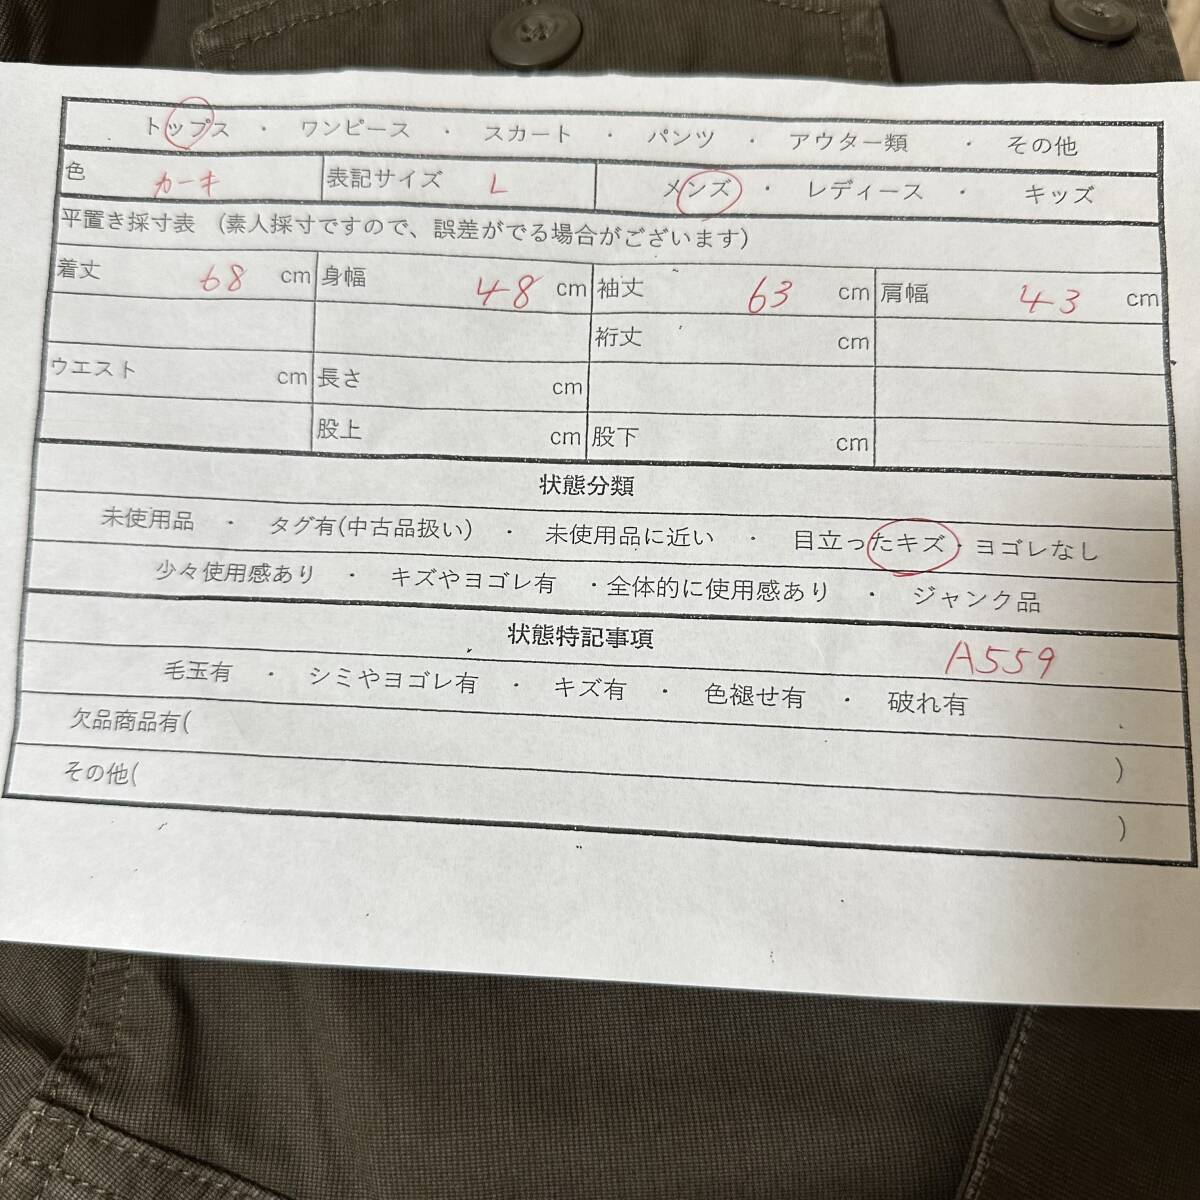 トップス ・ ワンピース ・ スカート ・ パンツ ・ アウター類 ・ その他
色 カーキ 表記サイズ L メンズ ・ レディース ・ キッズ
平置き採寸表 (素人採寸ですので、誤差がでる場合がございます)
着丈 68 cm 身幅 48 cm 袖丈 63 cm 肩幅 43 cm
裄丈 cm
ウエスト cm 長さ cm
股上 cm 股下 cm
状態分類
未使用品 ・ タグ有(中古品扱い) ・ 未使用品に近い ・ 目立ったキズ・ヨゴレなし
少々使用感あり ・ キズやヨゴレ有 ・全体的に使用感あり ・ ジャンク品
状態特記事項 A559
毛玉有 ・ シミやヨゴレ有 ・ キズ有 ・ 色褪せ有 ・ 破れ有
欠品商品有( )
その他( )